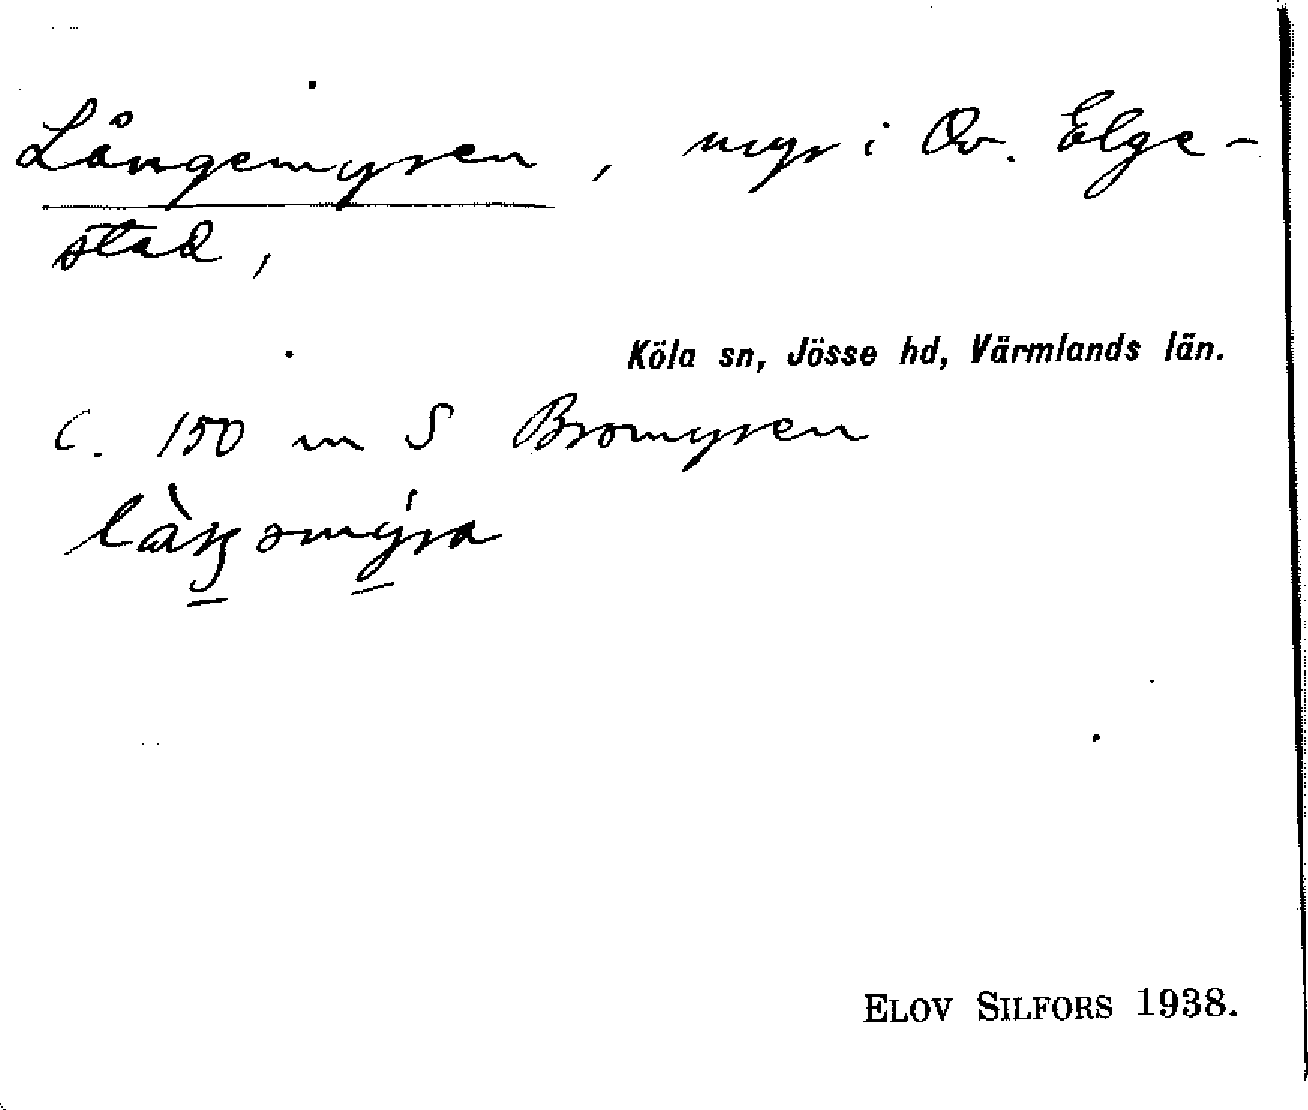 Långemyren, myr i Öv. Elge-
stad,
Köla sn, Jösse hd, Värmlands län.
C. 150 m S Bromyren
ELOV SILFORS 1938.